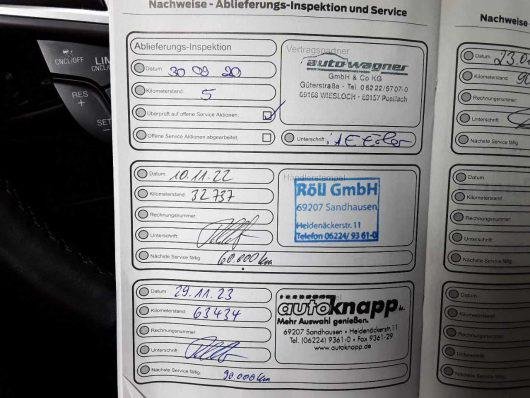 Nachweise - Ablieferungs-Inspektion und Service
Nachweise
CNCL/OFF
LIM
CNCL/OFF
RES
+
SET
Ablieferungs-Inspektion
Datum 30 09 20
Kilometerstand 5
Überprüft auf offene Service Aktionen
Offene Service Aktionen abgearbeitet
Vertragspartner
autowagner
GmbH & Co KG
Güterstraße - Tel. 0 62 22/57 07-0
69168 WIESLOCH - 69157 Postfach
Unterschrift
Datum 10.11.22
Kilometerstand 32737
Rechnungsnummer
Unterschrift
Nächste Service fällig 60.000 km
Händlerstempel
Röll GmbH
69207 Sandhausen
Heidenäckerstr. 11
Telefon 06224/ 93 61-0
Datum 29.11.23
Kilometerstand 63434
Rechnungsnummer
Unterschrift
Nächste Service fällig 90.000 km
autoknapp
Mehr Auswahl genießen.
69207 Sandhausen • Heidenäckerstr. 11
Tel. (06224) 9361-0 • Fax 9361-29
www.autoknapp.de
Datum
Kilometerstand
Rechnungsnummer
Unterschrift
Nächste Service
Datum
Kilometerstand
Rechnungsnummer
Unterschrift
Nächste Service
Datum
Kilometerstand
Rechnungsnummer
Unterschrift
Nächste Service